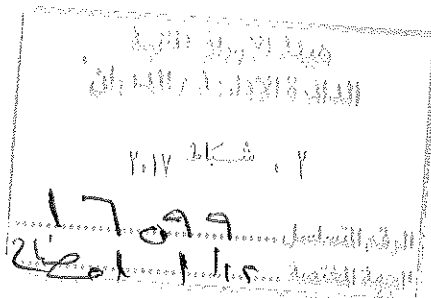 هيئة الاوراق المالية
الدائرة الإدارية / الديوان
٠٢ شباط ٢٠١٧
الرقم المتسلسل ١٦٥٩٩
الجهة المختصة